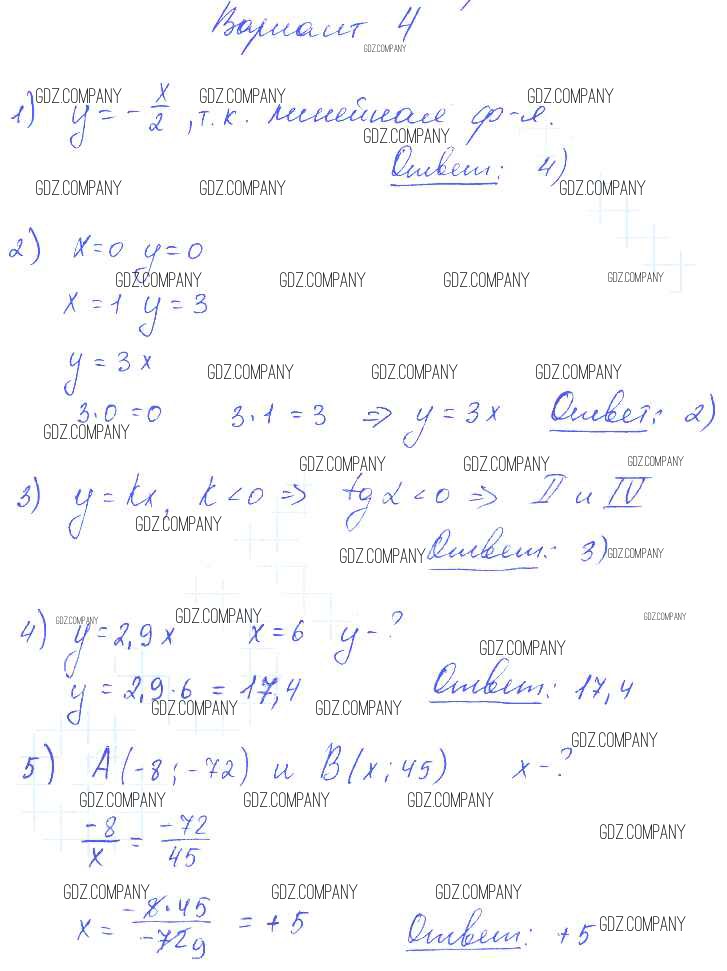 Вариант 4
GDZ.COMPANY
GDZ.COMPANY GDZ.COMPANY GDZ.COMPANY
1) y = - x/2, т.к. линейная ф-я.
GDZ.COMPANY
Ответ: 4)
GDZ.COMPANY GDZ.COMPANY GDZ.COMPANY
2) x=0 y=0
GDZ.COMPANY GDZ.COMPANY GDZ.COMPANY GDZ.COMPANY
x=1 y=3
y=3x
GDZ.COMPANY GDZ.COMPANY GDZ.COMPANY
3·0=0 3·1=3 => y=3x Ответ: 2)
GDZ.COMPANY
GDZ.COMPANY GDZ.COMPANY GDZ.COMPANY
3) y=kx, k<0 => tg α<0 => II и IV
GDZ.COMPANY
Ответ: 3)
GDZ.COMPANY GDZ.COMPANY
GDZ.COMPANY GDZ.COMPANY GDZ.COMPANY
4) y=2,9x x=6 y-?
GDZ.COMPANY
y=2,9·6=17,4 Ответ: 17,4
GDZ.COMPANY GDZ.COMPANY
GDZ.COMPANY
5) A(-8;-72) и B(x;45) x-?
GDZ.COMPANY GDZ.COMPANY GDZ.COMPANY
-8/x = -72/45
GDZ.COMPANY
GDZ.COMPANY GDZ.COMPANY GDZ.COMPANY
x = -8·45/-72 9 = +5 Ответ: +5
GDZ.COMPANY